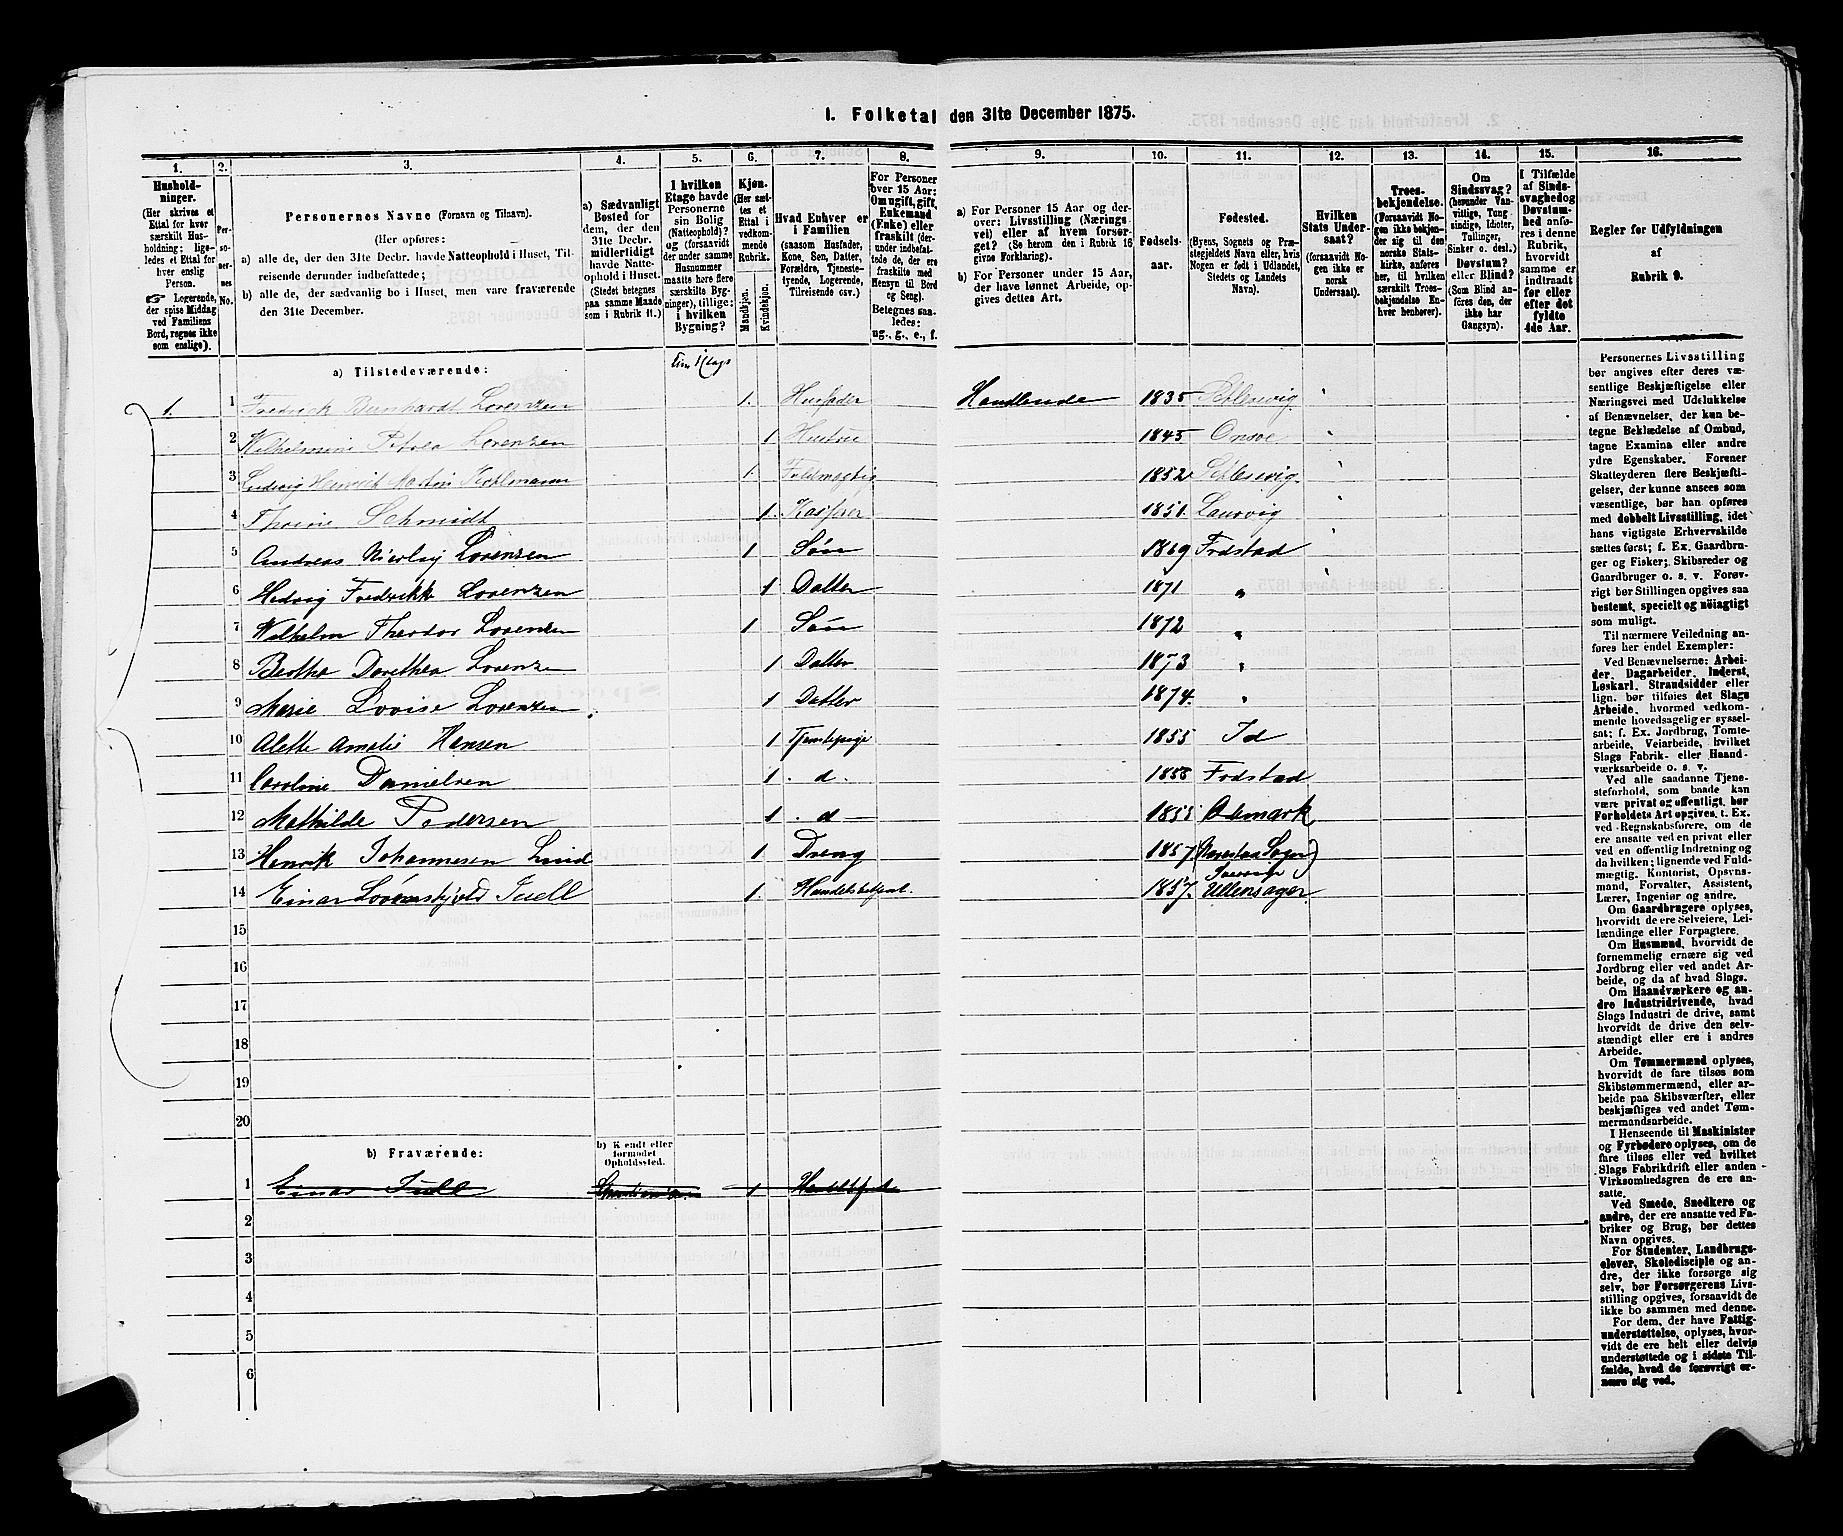 1. Folketal den 31te December 1875.
1. 2. 3. 4. 5. 6. 7. 8. 9. 10. 11. 12. 13. 14. 15. 16.
Hushold-
ninger.
(Her skrives et
Ettal for hver
særskilt Hus-
holdning; lige-
ledes et Ettal for
hver enslig
Person.
☞ Logerende,
der spise Middag
ved Familiens
Bord, regnes ikke
som enslige).
Per-
so-
ner-
nes
No.
Personernes Navne (Fornavn og Tilnavn).
(Her opføres:
a) alle de, der den 31te Decbr. havde Natteophold i Huset, Til-
reisende derunder indbefattede;
b) alle de, der sædvanlig bo i Huset, men vare fraværende
den 31te December.
a) Sædvanligt
Bosted for
dem, der den
31te Decbr.
midlertidigt
havde Natte-
ophold i Huset.
(Stedet betegnes
paa samme Maade
som i Rubrik 11.)
I hvilken
Etage havde
Personerne
sin Bolig
(Natteophold)?
og (forsaavidt
der under samme
Husnummer
maatte høre flere
særskilte Byg-
ninger), tillige:
i hvilken
Bygning?
Kjøn.
(Her sæt-
tes et
Ettal i
vedkom-
mende
Rubrik.
Mandkjøn.
Kvindekjøn.
Hvad Enhver er
i Familien
(saasom Husfader,
Kone, Søn, Datter,
Forældre, Tjeneste-
tyende, Logerende,
Tilreisende osv.)
For Personer
over 15 Aar:
Om ugift, gift,
Enkemand
(Enke) eller
fraskilt (der-
under indbefat-
tede de, der ere
fraskilte med
Hensyn til Bord
og Seng).
Betegnes saa-
ledes:
ug., g., e., f.
a) For Personer 15 Aar og der-
over: Livsstilling (Nærings-
vei) eller af hvem forsør-
get? (Se herom den i Rubrik 16
givne Forklaring).
b) For Personer under 15 Aar,
der have lønnet Arbeide, op-
gives dettes Art.
Fødsels-
aar.
Fødested.
(Byens, Sognets og Præ-
stegjeldets Navn eller, hvis
Nogen er født i Udlandet,
Stedets og Landets
Navn).
Hvilken
Stats Under-
saat?
(forsaavidt No-
gen ikke er
norsk
Undersaat).
Troes-
bekjendelse.
(Forsaavidt No-
gen ikke bekjen-
der sig til den
norske Stats-
kirke, anføres
her, til hvilken
særskilt Troes-
bekjendelse En-
hver henhører).
Om
Sindssvag?
(herunder Van-
vittige, Tung-
sindige, Idioter,
Tullinger,
Sinker o. desl.)
Døvstum?
eller Blind?
(Som Blind an-
føres den, der
ikke har
Gangsyn).
I Tilfælde
af Sinds-
svaghed og
Døvstum-
hed anfø-
res i denne
Rubrik,
hvorvidt
samme er
indtraadt
før eller
efter det
fyldte
4de Aar.
Regler for Udfyldningen
af
Rubrik 9.
a) Tilstedeværende:
1. 1 Fredrick Bernhardt Lorenzen 1. Husfader Handlende 1835 Schlesvig
2 Wilhelmine Petrea Lorenzen 1 Hustru 1845 Onsøe
3 Ludvig Henrick Martin 1 Fuldmægtig 1852 Schlesvig
4 Schmidt 1. Kasserer 1851. Laurvig
5 Andreas Nicolay Lorenzen 1 Søn 1869 Frdstad
6 Hedvig Fredrikke Lorenzen 1 Datter 1871 "
7 Wilhelm Theodor Lorenzen 1 Søn 1872 "
8 Berthe Dorethea Lorenzen 1 Datter 1873 "
9 Marie Lovise Lorenzen 1 Datter 1874. "
10 Alette Amalie Hansen 1 Tjenstepige 1855 Id
11 Caroline Danielsen 1 . d . 1858 Frdstad
12 Mathilde Pedersen 1 . d 1855 Aremark
13 Henrik Johannesen Lund 1 Dreng 1857.
14 Einar Juell 1. 1857. Ullensager
15
16
17
18
19
20
b) Fraværende:
b) Kjendt eller
formodet
Opholdssted.
1 Einar Juell 1
2
3
4
5
6
Personernes Livsstilling
bør angives efter deres væ-
sentlige Beskjæftigelse eller
Næringsvei med Udelukkelse
af Benævnelser, der kun be-
tegne Beklædelse af Ombud,
tagne Examina eller andre
ydre Egenskaber. Forener
Skatteyderen flere Beskjæfti-
gelser, der kunne ansees som
væsentlige, bør han opføres
med dobbelt Livsstilling, idet
hans vigtigste Erhvervskilde
sættes først; f. Ex. Gaardbru-
ger og Fisker; Skibsreder og
Gaardbruger o. s. v. Forøv-
rigt bør Stillingen opgives saa
bestemt, specielt og nöiagtigt
som muligt.
Til nærmere Veiledning an-
føres her endel Exempler:
Ved Benævnelserne: Arbei-
der, Dagarbeider, Inderst,
Løskarl, Strandsidder eller
lign. bør tilføies det Slags
Arbeide, hvormed vedkom-
mende hovedsagelig er syssel-
sat; f. Ex. Jordbrug, Tomte-
arbeide, Veiarbeide, hvilket
Slags Fabrik- eller Haand-
værksarbeide o. s. v.
Ved alle saadanne Tjene-
steforhold, som baade kan
være privat og offentligt, bør
Forholdets Art opgives, t. Ex.
ved Regnskabsførere, om de
ere ansatte ved en privat eller
ved en offentlig Indretning og
da hvilken; lignende ved Fuld-
mægtig, Kontorist, Opsyns-
mand, Forvalter, Assistent,
Lærer, Ingeniør og andre.
Om Gaardbrugere oplyses,
hvorvidt de ere Selveiere, Lei-
lændinge eller Forpagtere.
Om Husmænd, hvorvidt de
fornemmelig ernære sig ved
Jordbrug eller ved andet Ar-
beide, og da af hvad Slags.
Om Haandværkere og an-
dre Industridrivende, hvad
Slags Industri de drive, samt
hvorvidt de drive den selv-
stændigt eller ere i andres
Arbeide.
Om Tømmermænd oplyses,
hvorvidt de fare tilsøs som
Skibstømmermænd, eller ar-
beide paa Skibsværfter, eller
beskjæftiges ved andet Tøm-
mermandsarbeide.
I Henseende til Maskinister
og Fyrbødere oplyses, om de
fare tilsøs eller ved hvilket
Slags Fabrikdrift eller anden
Virksomhedsgren de ere an-
satte.
Ved Smede, Snedkere og
andre, der ere ansatte ved Fa-
briker og Brug, bør dettes
Navn opgives.
For Studenter, Landbrugs-
elever, Skoledisciple og an-
dre, der ikke forsørge sig
selv, bør Forsørgerens Livs-
stilling opgives, forsaavidt de
ikke bo sammen med denne.
For dem, der have Fattig-
understøttelse, oplyses, hvor-
vidt de ere helt eller delvis
understøttede og i sidste Til-
fælde, hvad de forøvrigt er-
nære sig ved.